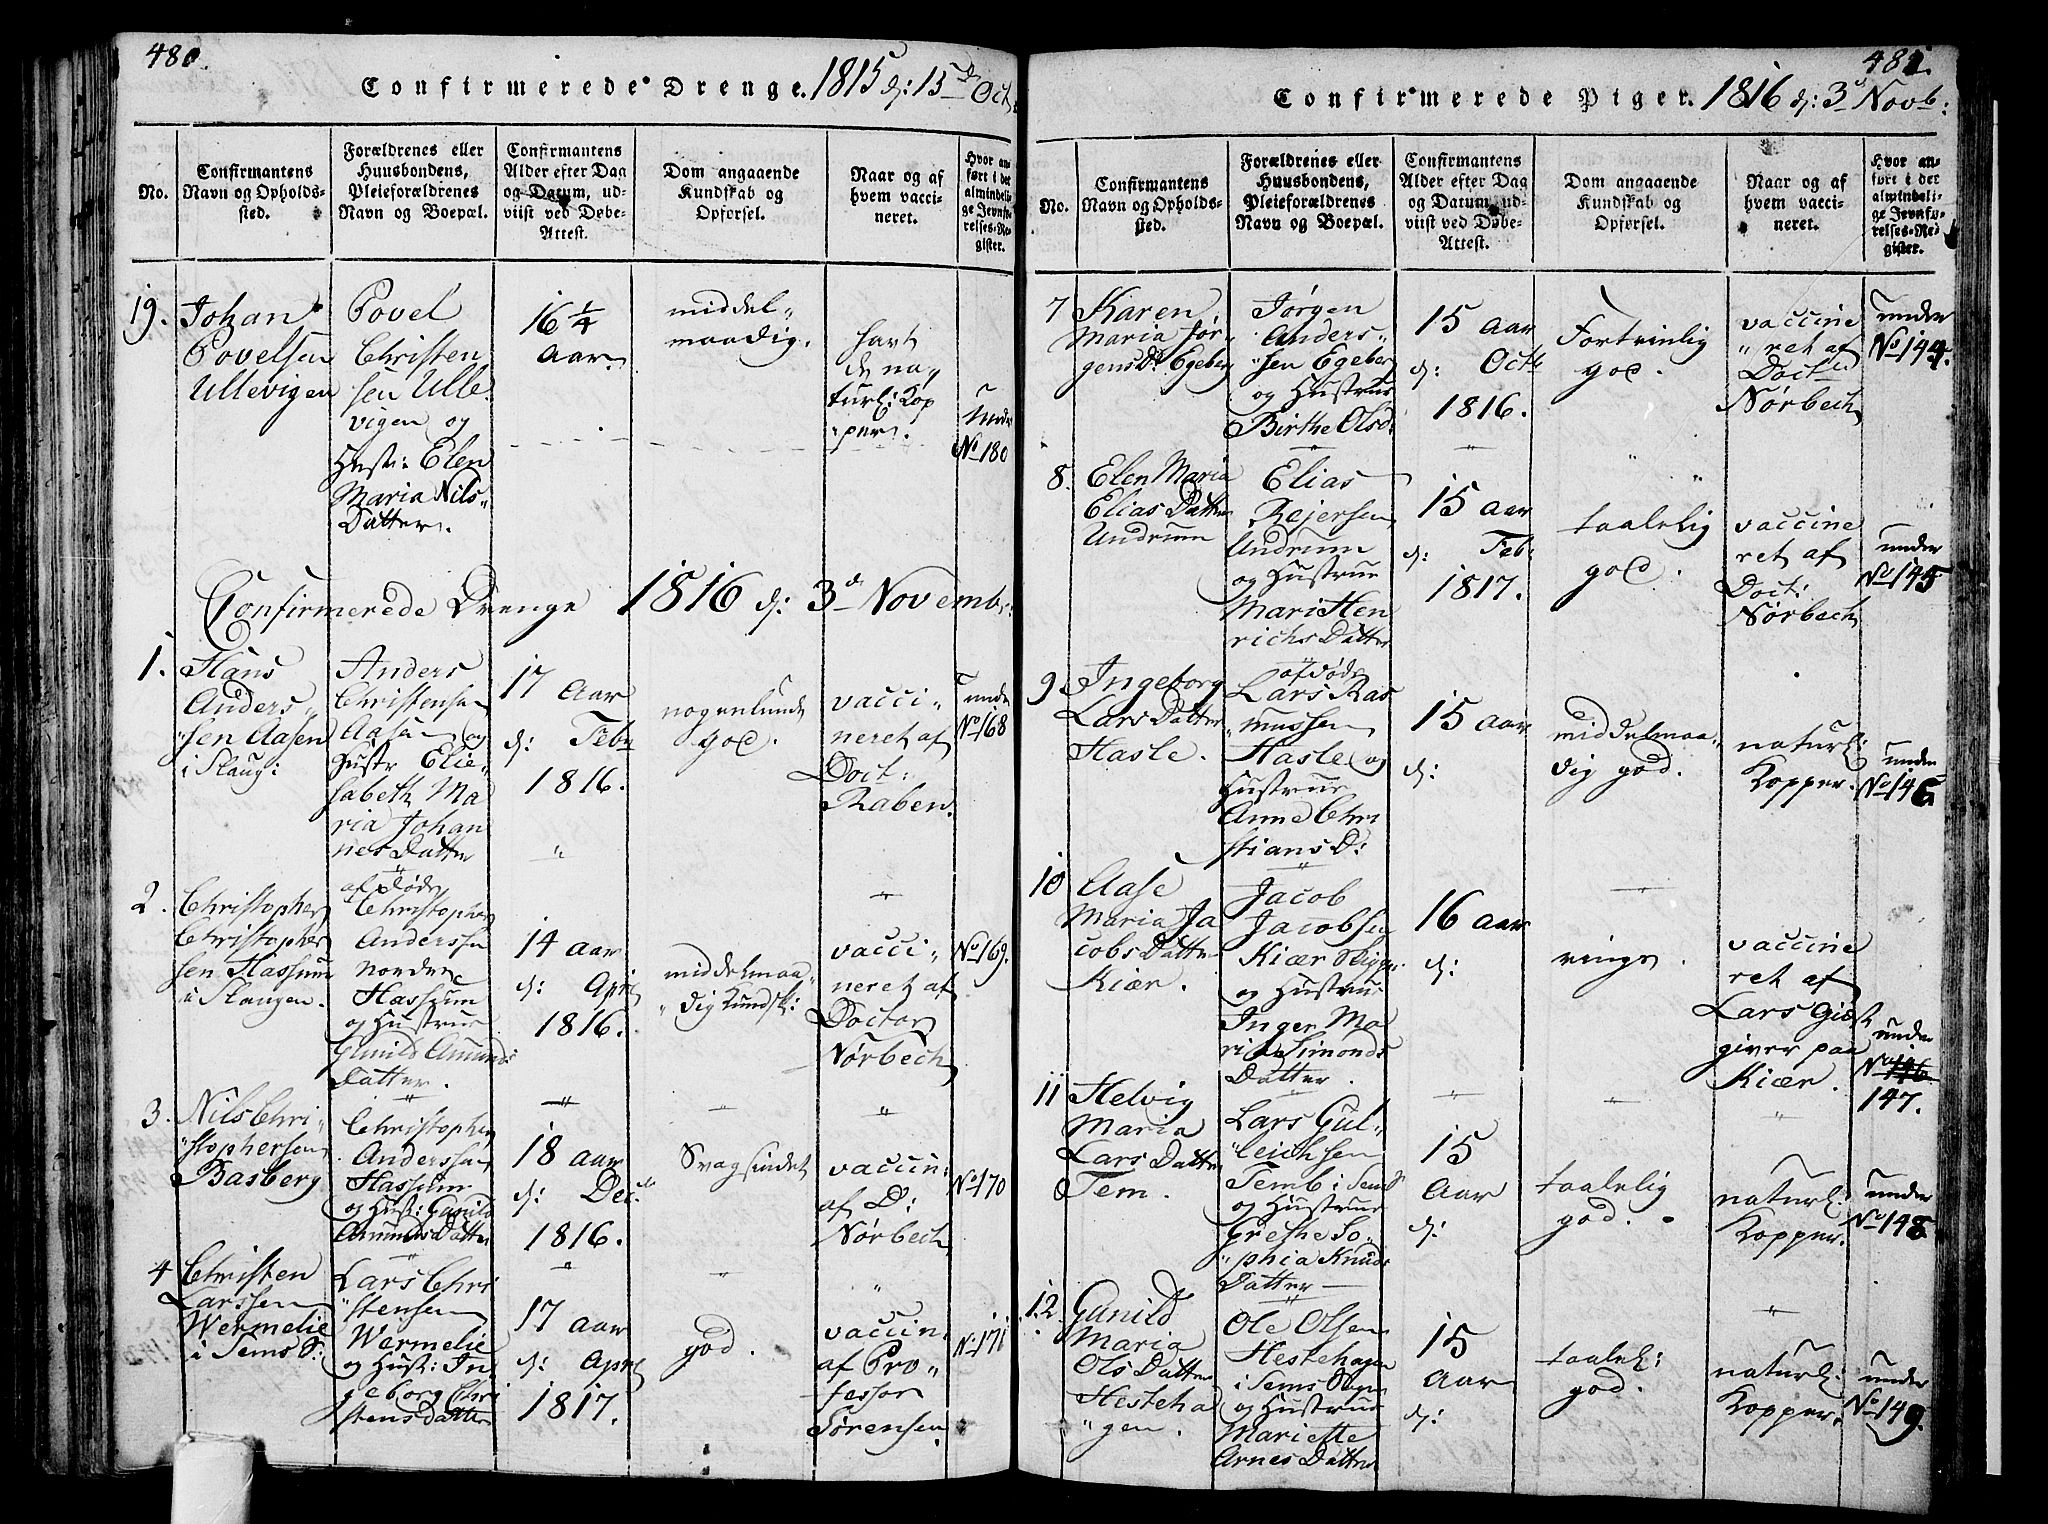 480.
Confirmerede Drenge. 1815 d: 15de Oct:
No.
Confirmantens
Navn og Opholds-
sted.
Forældrenes eller
Huusbondens,
Pleieforældrenes
Navn og Boepæl.
Confirmantens
Alder efter Dag
og Datum, ud-
viist ved Døbe-
Attest.
Dom angaaende
Kundskab og
Opførsel.
Naar og af
hvem vacci-
neret.
Hvor an-
ført i det
almindeli-
ge Jevnfø-
relses-Re-
gister.
19.
Johan
Povelsen
Ullevigen
Povel
Christen
sen Ulle
vigen og
Hust: Elen
Maria Nils-
Datter.
16 1/4
Aar
middel-
maadig.
havt
de na-
turl: Kop
per.
under
No 180
Confirmerede Drenge 1816 d: 3d Novembr:
1.
Hans
Anders-
sen Aasen
i Slaug:
Anders
Christensen
Aasen og
Hustr Elie-
sabeth Ma
ria Johan
nes Datter
17 Aar
d: Febr
1816.
nogenlunde
god.
vacci-
neret af
Doct:
Raben.
under
No 168
2.
Christopher
Christopher
sen Hassum
i Slaugen.
afdøde
Christopher
Anderssen
nordre
Hassum
og Hustrue
Gunild Amunds
Datter.
14 aar
d: Apri
1816.
middelmaa-
dig Kundsk:
vacci-
neret af
Doctor
Nørbech
No 169.
3.
Nils Chri-
stophersen
Basberg
Christopher
Anderssen
Hassum
og Hust: Gunild
Amunds Datter
18 aar
d: Dec
1816.
Svagsindet
vaccin:
af D:
Nørbech
No 170
4
Christen
Larssen
Wermelie
i Sems S:
Lars Chri
stensen
Wermelie
og Hust: In
geborg Chri
stensdatter
17 aar
d: Apri
1817.
god.
vaccin.
af Pro-
fessor
Sørensen
No 171
481.
Confirmerede Piger. 1816 d: 3d Novb:
No.
Confirmantens
Navn og Opholds-
sted.
Forældrenes eller
Huusbondens,
Pleieforældrenes
Navn og Boepæl.
Confirmantens
Alder efter Dag
og Datum, ud-
viist ved Døbe-
Attest.
Dom angaaende
Kundskab og
Opførsel.
Naar og af
hvem vacci-
neret.
Hvor an-
ført i det
almindeli-
ge Jevnfø-
relses-Re-
gister.
7
Karen
Maria Jør-
gensD. Egeberg
Jørgen
Anders-
sen Egeberg
og Hustrue
Birthe Olsd:
15 Aar
d: Octb
1816.
Fortrinlig
god.
vaccine
ret af
Doct
Nørbech
under
No 144.
8.
Elen Maria
Elias Datter
Undrum
Elias
Rejersen
Undrum
og Hustrue
Mari Hen
richs Datter
15 aar
d: Feb:
1817.
taalelig
god.
vaccine
ret af
Doct:
Nørbech
under
No 145
9
Ingeborg
Lars Datter
Hasle.
afdøde
Lars Ras
mussen
Hasle og
Hustrue
Anne Chri
stians D:
15 aar
d:
middelmaa-
dig god.
naturl:
Kopper.
under
No 146
10
Aase
Maria Ja
cobs Datter
Kiær.
Jacob
Jacobsen
Kiær
og Hustrue
Inger Ma
ria Simonds
Datter.
16 aar
d:
ringe.
vaccine
ret af
Lars Giæst
giver paa
Kiær.
under
No 146
147.
11
Helvig
Maria
Lars Datter
Tem.
Lars Gul-
leichsen
Temb i Sem S
og Hustrue
Grethe So-
phia Knuds
Datter
15
Aar
d:
taalelig
god.
naturl:
Kopper.
under
No 148
12
Gunild
Maria
Ols Datter
Hesteha
gen.
Ole Olsen
Hestehagen
i Sems Sogn
og Hustrue
Mariette
Arnes Datter
15
Aar
d:
taalel:
god.
naturl:
Kopper.
under
No 149.